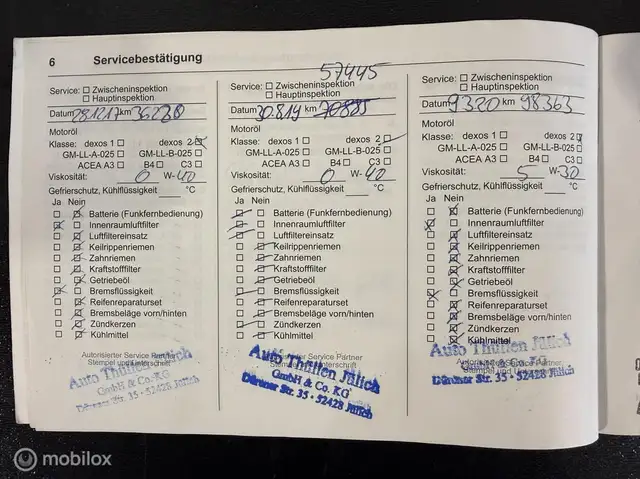 6 Servicebestätigung
Service: ☐ Zwischeninspektion
☐ Hauptinspektion
Datum 28.12.17 km 36220
Motoröl
Klasse: dexos 1 ☐ dexos 2 ☑
GM-LL-A-025 ☐ GM-LL-B-025 ☐
ACEA A3 ☐ B4 ☐ C3 ☐
Viskosität: 0 W- 40
Gefrierschutz, Kühlflüssigkeit °C
Ja Nein
☐ ☑ Batterie (Funkfernbedienung)
☑ ☐ Innenraumluftfilter
☐ ☑ Luftfiltereinsatz
☐ ☑ Keilrippenriemen
☐ ☑ Zahnriemen
☐ ☑ Kraftstofffilter
☐ ☑ Getriebeöl
☑ ☐ Bremsflüssigkeit
☐ ☑ Reifenreparaturset
☐ ☑ Bremsbeläge vorn/hinten
☐ ☑ Zündkerzen
☐ ☑ Kühlmittel
Autorisierter Service Partner
Stempel und Unterschrift
Auto Thüllen Jülich
GmbH & Co. KG
Dürener Str. 35 · 52428 Jülich
57445
Service: ☐ Zwischeninspektion
☐ Hauptinspektion
Datum 30.8.19 km
Motoröl
Klasse: dexos 1 ☐ dexos 2 ☑
GM-LL-A-025 ☐ GM-LL-B-025 ☐
ACEA A3 ☐ B4 ☐ C3 ☐
Viskosität: 0 W- 40
Gefrierschutz, Kühlflüssigkeit °C
Ja Nein
☑ ☐ Batterie (Funkfernbedienung)
☑ ☐ Innenraumluftfilter
☑ ☐ Luftfiltereinsatz
☐ ☑ Keilrippenriemen
☐ ☑ Zahnriemen
☐ ☑ Kraftstofffilter
☐ ☑ Getriebeöl
☑ ☐ Bremsflüssigkeit
☐ ☑ Reifenreparaturset
☐ ☑ Bremsbeläge vorn/hinten
☑ ☐ Zündkerzen
☐ ☑ Kühlmittel
Autorisierter Service Partner
Auto Thüllen Jülich
GmbH & Co. KG
Dürener Str. 35 · 52428 Jülich
Service: ☐ Zwischeninspektion
☐ Hauptinspektion
Datum 9320 km 98363
Motoröl
Klasse: dexos 1 ☐ dexos 2 ☑
GM-LL-A-025 ☐ GM-LL-B-025 ☐
ACEA A3 ☐ B4 ☐ C3 ☐
Viskosität: 5 W- 30
Gefrierschutz, Kühlflüssigkeit °C
Ja Nein
☐ ☑ Batterie (Funkfernbedienung)
☑ ☐ Innenraumluftfilter
☐ ☑ Luftfiltereinsatz
☐ ☑ Keilrippenriemen
☐ ☑ Zahnriemen
☐ ☑ Kraftstofffilter
☐ ☑ Getriebeöl
☑ ☐ Bremsflüssigkeit
☐ ☑ Reifenreparaturset
☐ ☑ Bremsbeläge vorn/hinten
☐ ☑ Zündkerzen
☐ ☑ Kühlmittel
Auto Thüllen Jülich
Autorisierter Service Partner
GmbH & Co. KG
Dürener Str. 35 · 52428 Jülich
mobilox